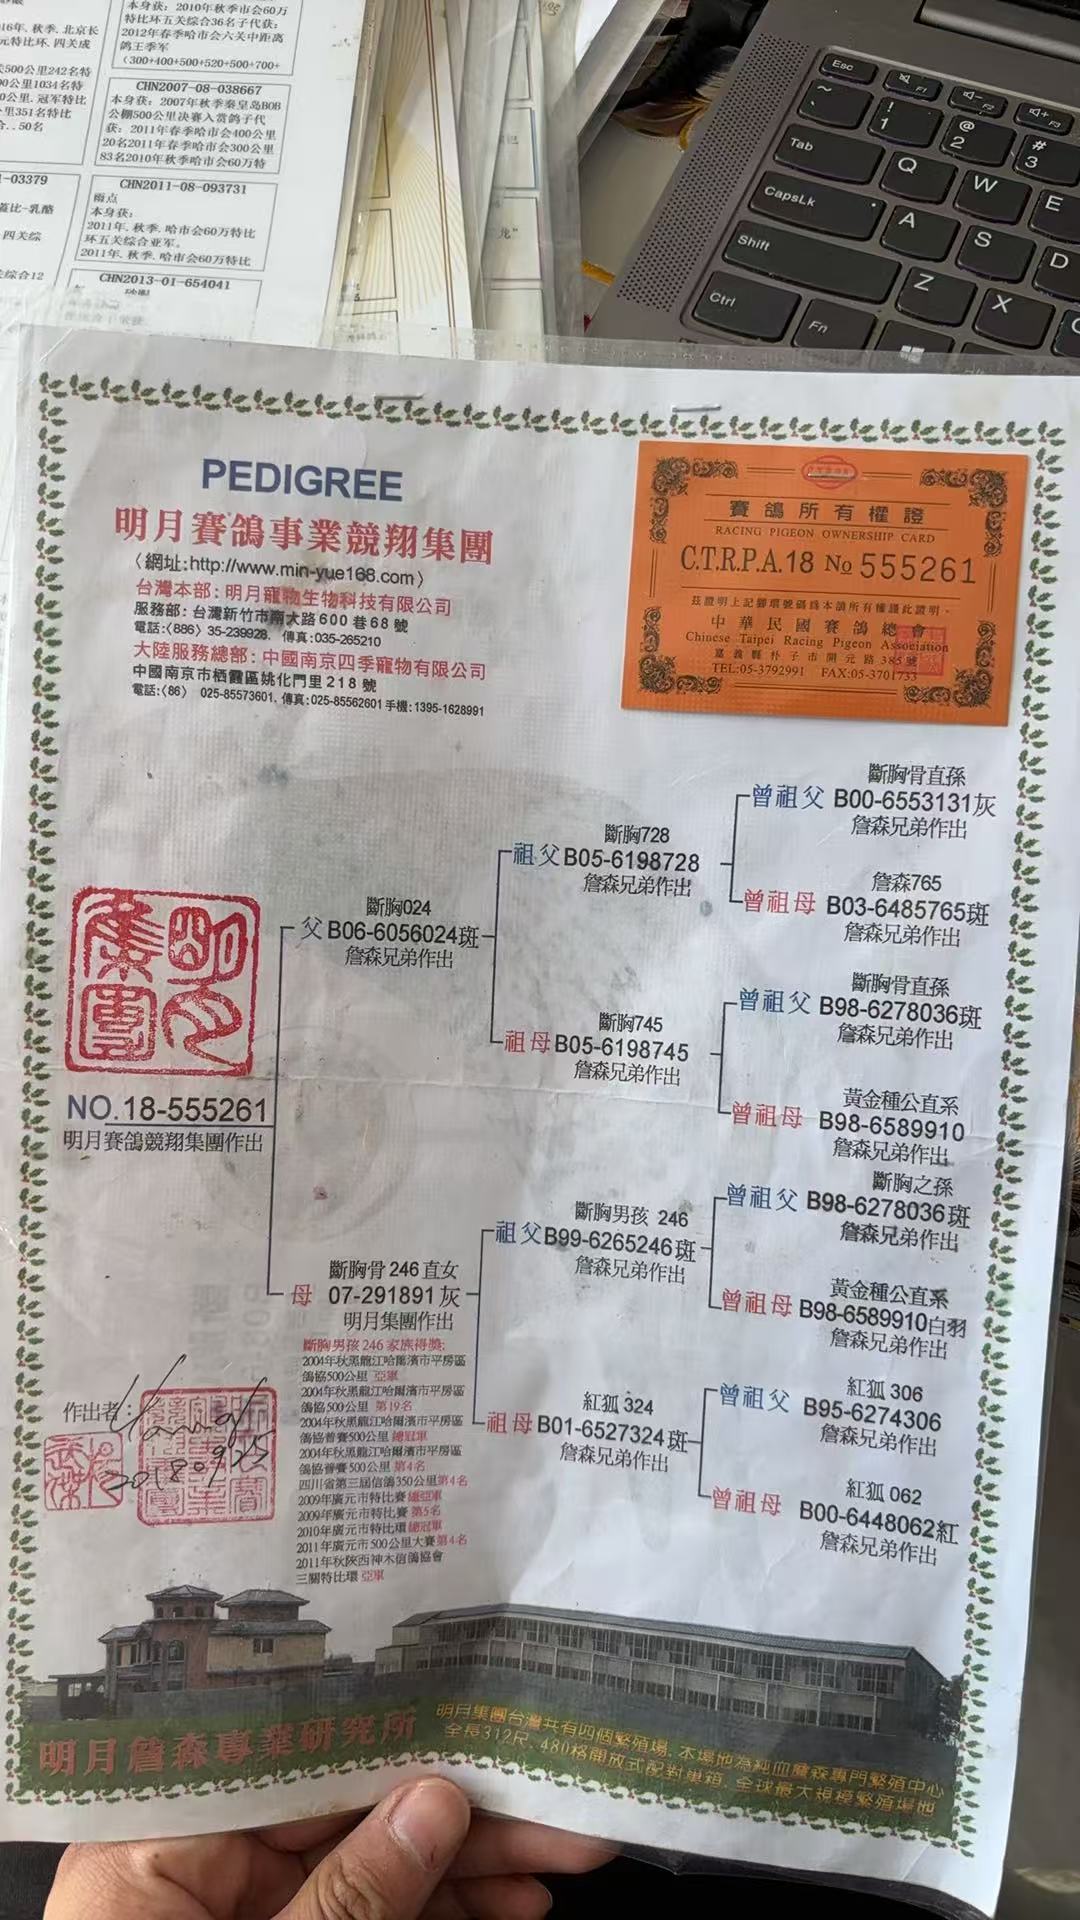 本身获：2010年秋季市会60万
特比环五关综合36名子代获：
2012年春季哈市会六关中距离
鸽王季军
(300+400+500+520+500+700+
16年.秋季.北京长
元特比环.四关成
500公里242名特
公里1034名特
0公里.冠军特比
里351名特比
50名
CHN2007-08-038667
本身获：2007年秋季秦皇岛BOB
公棚500公里决赛入赏鸽子代
获：2011年春季哈市会400公里
20名2011年春季哈市会300公里
83名2010年秋季哈市会60万特
1-03379
蓋比-乳酪
四关综
综合12
CHN2011-08-093731
雨点
本身获：
2011年.秋季.哈市会60万特比
环五关综合亚军。
2011年.秋季.哈市会60万特比
CHN2013-01-654041
Esc
F1
F2
F3
~
`
!
1
@
2
#
3
Tab
Q
W
E
CapsLk
A
S
D
Shift
Z
X
C
Ctrl
Fn
PEDIGREE
明月賽鴿事業競翔集團
〈網址:http://www.min-yue168.com〉
台灣本部：明月寵物生物科技有限公司
服務部：台灣新竹市南大路600巷68號
電話:〈886〉35-239928. 傳真:035-265210
大陸服務總部：中國南京四季寵物有限公司
中國南京市栖霞區姚化門里218號
電話:〈86〉 025-85573601. 傳真:025-85562601 手機:1395-1628991
賽鴿所有權證
RACING PIGEON OWNERSHIP CARD
C.T.R.P.A.18 No 555261
茲證明上記腳環號碼為本鴿所有權謹此證明。
中華民國賽鴿總會
Chinese Taipei Racing Pigeon Association
嘉義縣朴子市開元路385號
TEL:05-3792991 FAX:05-3701733
斷胸骨直孫
曾祖父 B00-6553131灰
詹森兄弟作出
斷胸728
祖父B05-6198728
詹森兄弟作出
詹森765
曾祖母 B03-6485765斑
詹森兄弟作出
斷胸024
父 B06-6056024斑
詹森兄弟作出
斷胸骨直孫
曾祖父 B98-6278036斑
詹森兄弟作出
斷胸745
祖母B05-6198745
詹森兄弟作出
黃金種公直系
曾祖母 B98-6589910
詹森兄弟作出
明月集團
NO.18-555261
明月賽鴿競翔集團作出
斷胸之孫
曾祖父 B98-6278036斑
詹森兄弟作出
斷胸男孩 246
祖父B99-6265246斑
詹森兄弟作出
黃金種公直系
曾祖母 B98-6589910白羽
詹森兄弟作出
斷胸骨246直女
母 07-291891灰
明月集團作出
紅狐 306
曾祖父 B95-6274306
詹森兄弟作出
紅狐 324
祖母B01-6527324斑
詹森兄弟作出
紅狐 062
曾祖母 B00-6448062紅
詹森兄弟作出
斷胸男孩246家族得獎:
2004年秋黑龍江哈爾濱市平房區
鴿協500公里 亞軍
2004年秋黑龍江哈爾濱市平房區
鴿協500公里 第19名
2004年秋黑龍江哈爾濱市平房區
鴿協普賽500公里 總冠軍
2004年秋黑龍江哈爾濱市平房區
鴿協普賽500公里 第4名
四川省第三屆信鴿350公里第4名
2009年廣元市特比賽 總亞軍
2009年廣元市特比賽 第5名
2010年廣元市特比環 總冠軍
2011年廣元市500公里大賽第4名
2011年秋陝西神木信鴿協會
三關特比環 亞軍
作出者：
20180925
明月詹森專業研究所
明月集團台灣共有四個繁殖場，本場地為純血詹森專門繁殖中心
全長312尺，480格開放式配對巢箱，全球最大規模繁殖場地